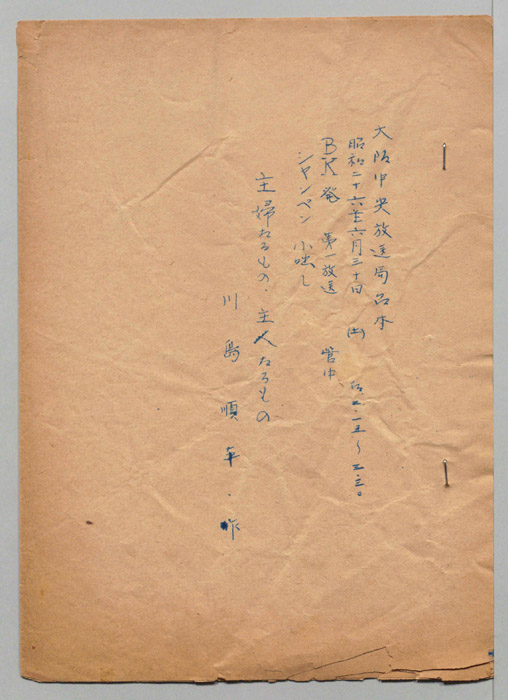 大阪中央放送局台本
昭和二十六年六月三十日 (土) 后五・一五~五・三〇
BK発 第一放送 管中
シャンペン 小咄し
主婦たるもの・主人たるもの
川島順平・作